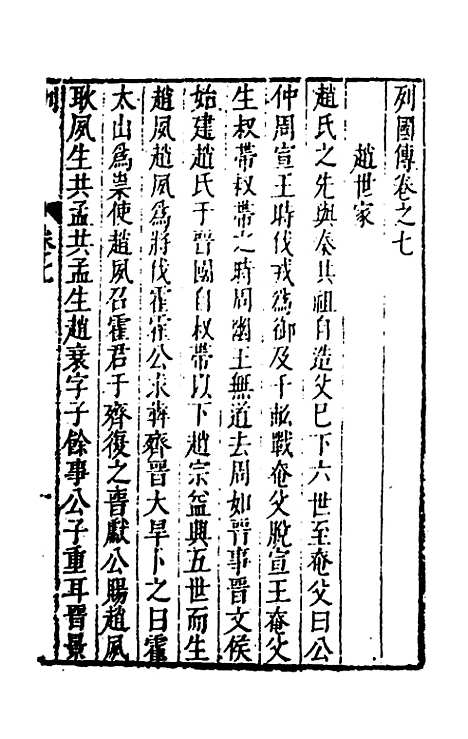 列國傳卷之七
趙世家
趙氏之先與秦共祖自造父已下六世至奄父曰公
仲周宣王時伐戎為御及千畝戰奄父脫宣王奄父
生叔帶叔帶之時周幽王無道去周如晉事晉文侯
始建趙氏于晉國自叔帶以下趙宗益興五世而生
趙夙趙夙為將伐霍霍公求犇齊晉大旱卜之曰霍
太山為祟使趙夙召霍君于齊復之晉獻公賜趙夙
耿夙生共孟共孟生趙衰字子餘事公子重耳晉景
卷之七
一